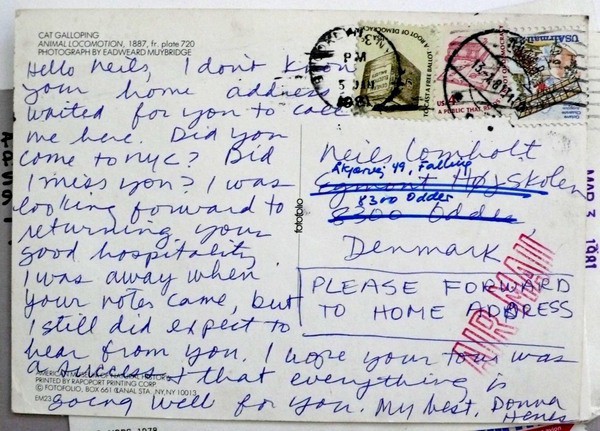 CAT GALLOPING
ANIMAL LOCOMOTION, 1887, fr. plate 720
PHOTOGRAPH BY EADWEARD MUYBRIDGE
Hello Neils, I don't know
your home address
waited for you to call
me here. Did you
come to NYC? Did
I miss you? I was
looking forward to
returning your
good hospitality
I was away when
your notes came, but
I still did expect to
hear from you. I hope your tour was
a success & that everything is
going well for you. My best, Donna
Henes
AMERICAN MUSEUM OF
PRINTED BY RAPOPORT PRINTING CORP.
© FOTOFOLIO, BOX 661 CANAL STA., NY, NY 10013
EM23
fotofolio
PM
1981
A ROOT OF DEMOCRACY
TO CAST A FREE BALLOT
A PUBLIC THAT
USAirmail
Neils Lomholt
Falling
Skolen
8300 Odder
8300 Odder
Denmark
PLEASE FORWARD
TO HOME ADDRESS
AIR MAIL
MAR 3 1981